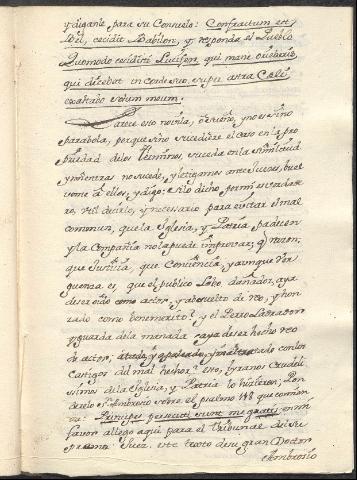 y digante para su Consuelo: Confractum est
Bel, cecidit Babilon, y responda el Pueblo
Quomodo cecidisti Lucifer, qui mane oriebaris,
qui dicebat in corde suo, super astra Celi
exaltabo solium meum.
Parece esto novela, Señor, y no es sino
parabola, porque si no sucediere el caso en la pro
puedad de los Terminos, suceda en la similitud
y mientras no sucede, y letigamos ante Jueces, buel
vome a ellos, y digo: Si lo dicho por mi es verdade
ro, util decirlo, y necesario para evitar el mal
comun, que la Iglesia, y Patria padecen
y la Compañia no la puede improvar; q razon,
que Justicia, que Conciencia, y aunque ver
guenza es, que el publico Lobo, dañador, aya
de ser oido como actor, y absuelto de reo, y hon
rado como benemerito? y el Perro Labrador
y guarda de la menada aya de ser hecho reo
de actor, y maltratado con los
Castigos del mal hechor? esto, tyranos crudeli
ssimos de la Iglesia, y Patria lo hicieron; Pon
deralo Sn. Ambrosio sobre el psalmo 118 que comien
za: Principes persecuti sunt me gratis, en mi
favor allego aqui para el Tribunal del Su
premo Juez, este texto de su gran Doctor
Ambrosio